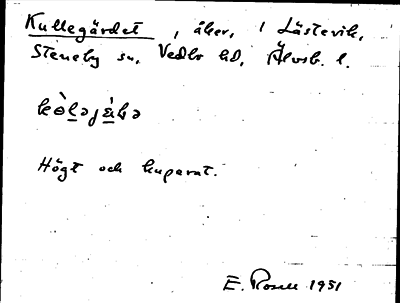 Kullegärdet, åker, i Låstevik,
Steneby sn, Vedbo hd, Älvsb. l.
Högt och kuperat.
E. Rosell 1951